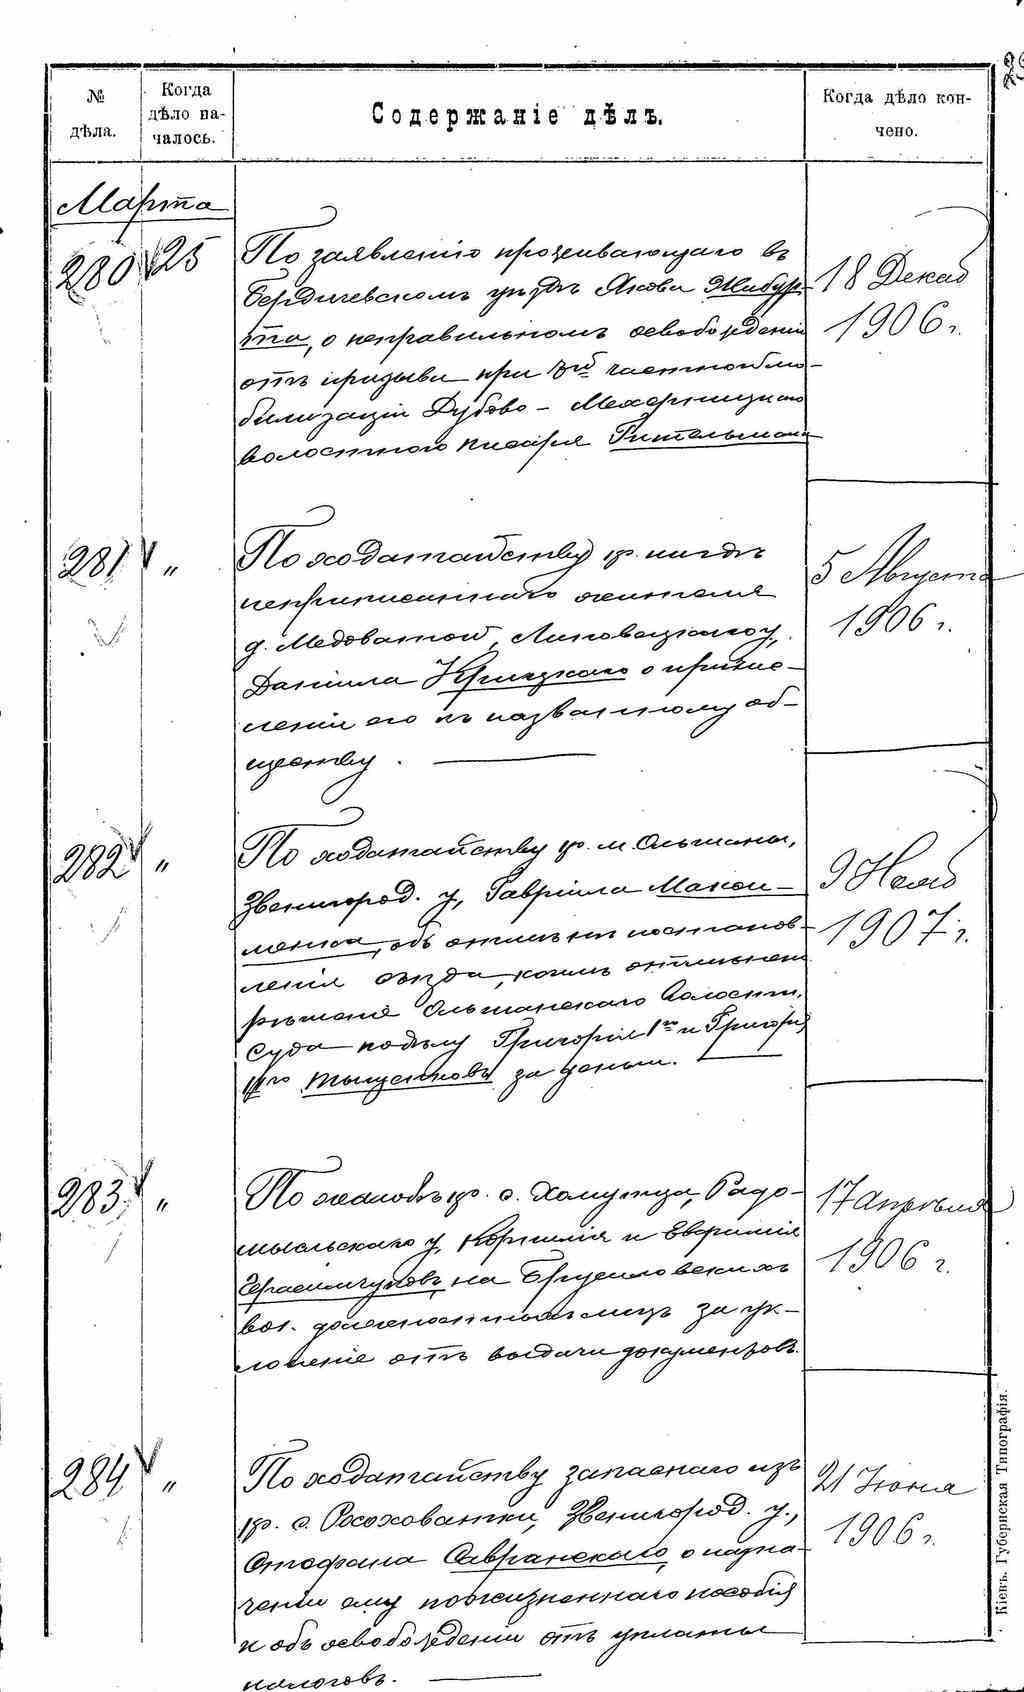 № дѣла.
Когда дѣло началось.
Содержаніе дѣлъ.
Когда дѣло кончено.
Марта
280 25
По заявленію проживающаго въ
Бердичевскомъ уѣздѣ Якова
о неправильномъ освобожденіи
отъ призыва при частной мо-
билизаціи Дубово-
волостного писаря Гительмана
18 Декаб
1906 г.
281 "
По ходатайству кр. нигдѣ
неприписаннаго жителя
д. Медоватой, Липовецкаго у.,
Даніила Крицкаго о причис-
леніи его къ названному об-
ществу.
5 Августа
1906 г.
282 "
По ходатайству кр. м. Ольшаны,
Звенигород. у., Гавріила Макси-
менка, объ отмѣнѣ постанов-
ленія съѣзда, коимъ отмѣнено
рѣшеніе Ольшанскаго Волостн.
Суда по дѣлу Григорія 1го и Григорія
IIго за деньги.
9 Нояб
1907 г.
283 "
По жалобѣ кр. с. Хомутца, Радо-
мысльскаго у. Корнилія и Евфимія
Герасимчуковъ, на Брусиловскихъ
вол. должностныхъ лицъ за ук-
лоненіе отъ выдачи документовъ.
17 Апрѣля
1906 г.
284 "
По ходатайству запаснаго изъ
кр. с. Рососховатки, Звенигород. у.,
Стефана Савранскаго, о назна-
ченіи ему пожизненнаго пособія
и объ освобожденіи отъ уплаты
налоговъ.
21 Іюня
1906 г.
Кіевъ. Губернская Типографія.